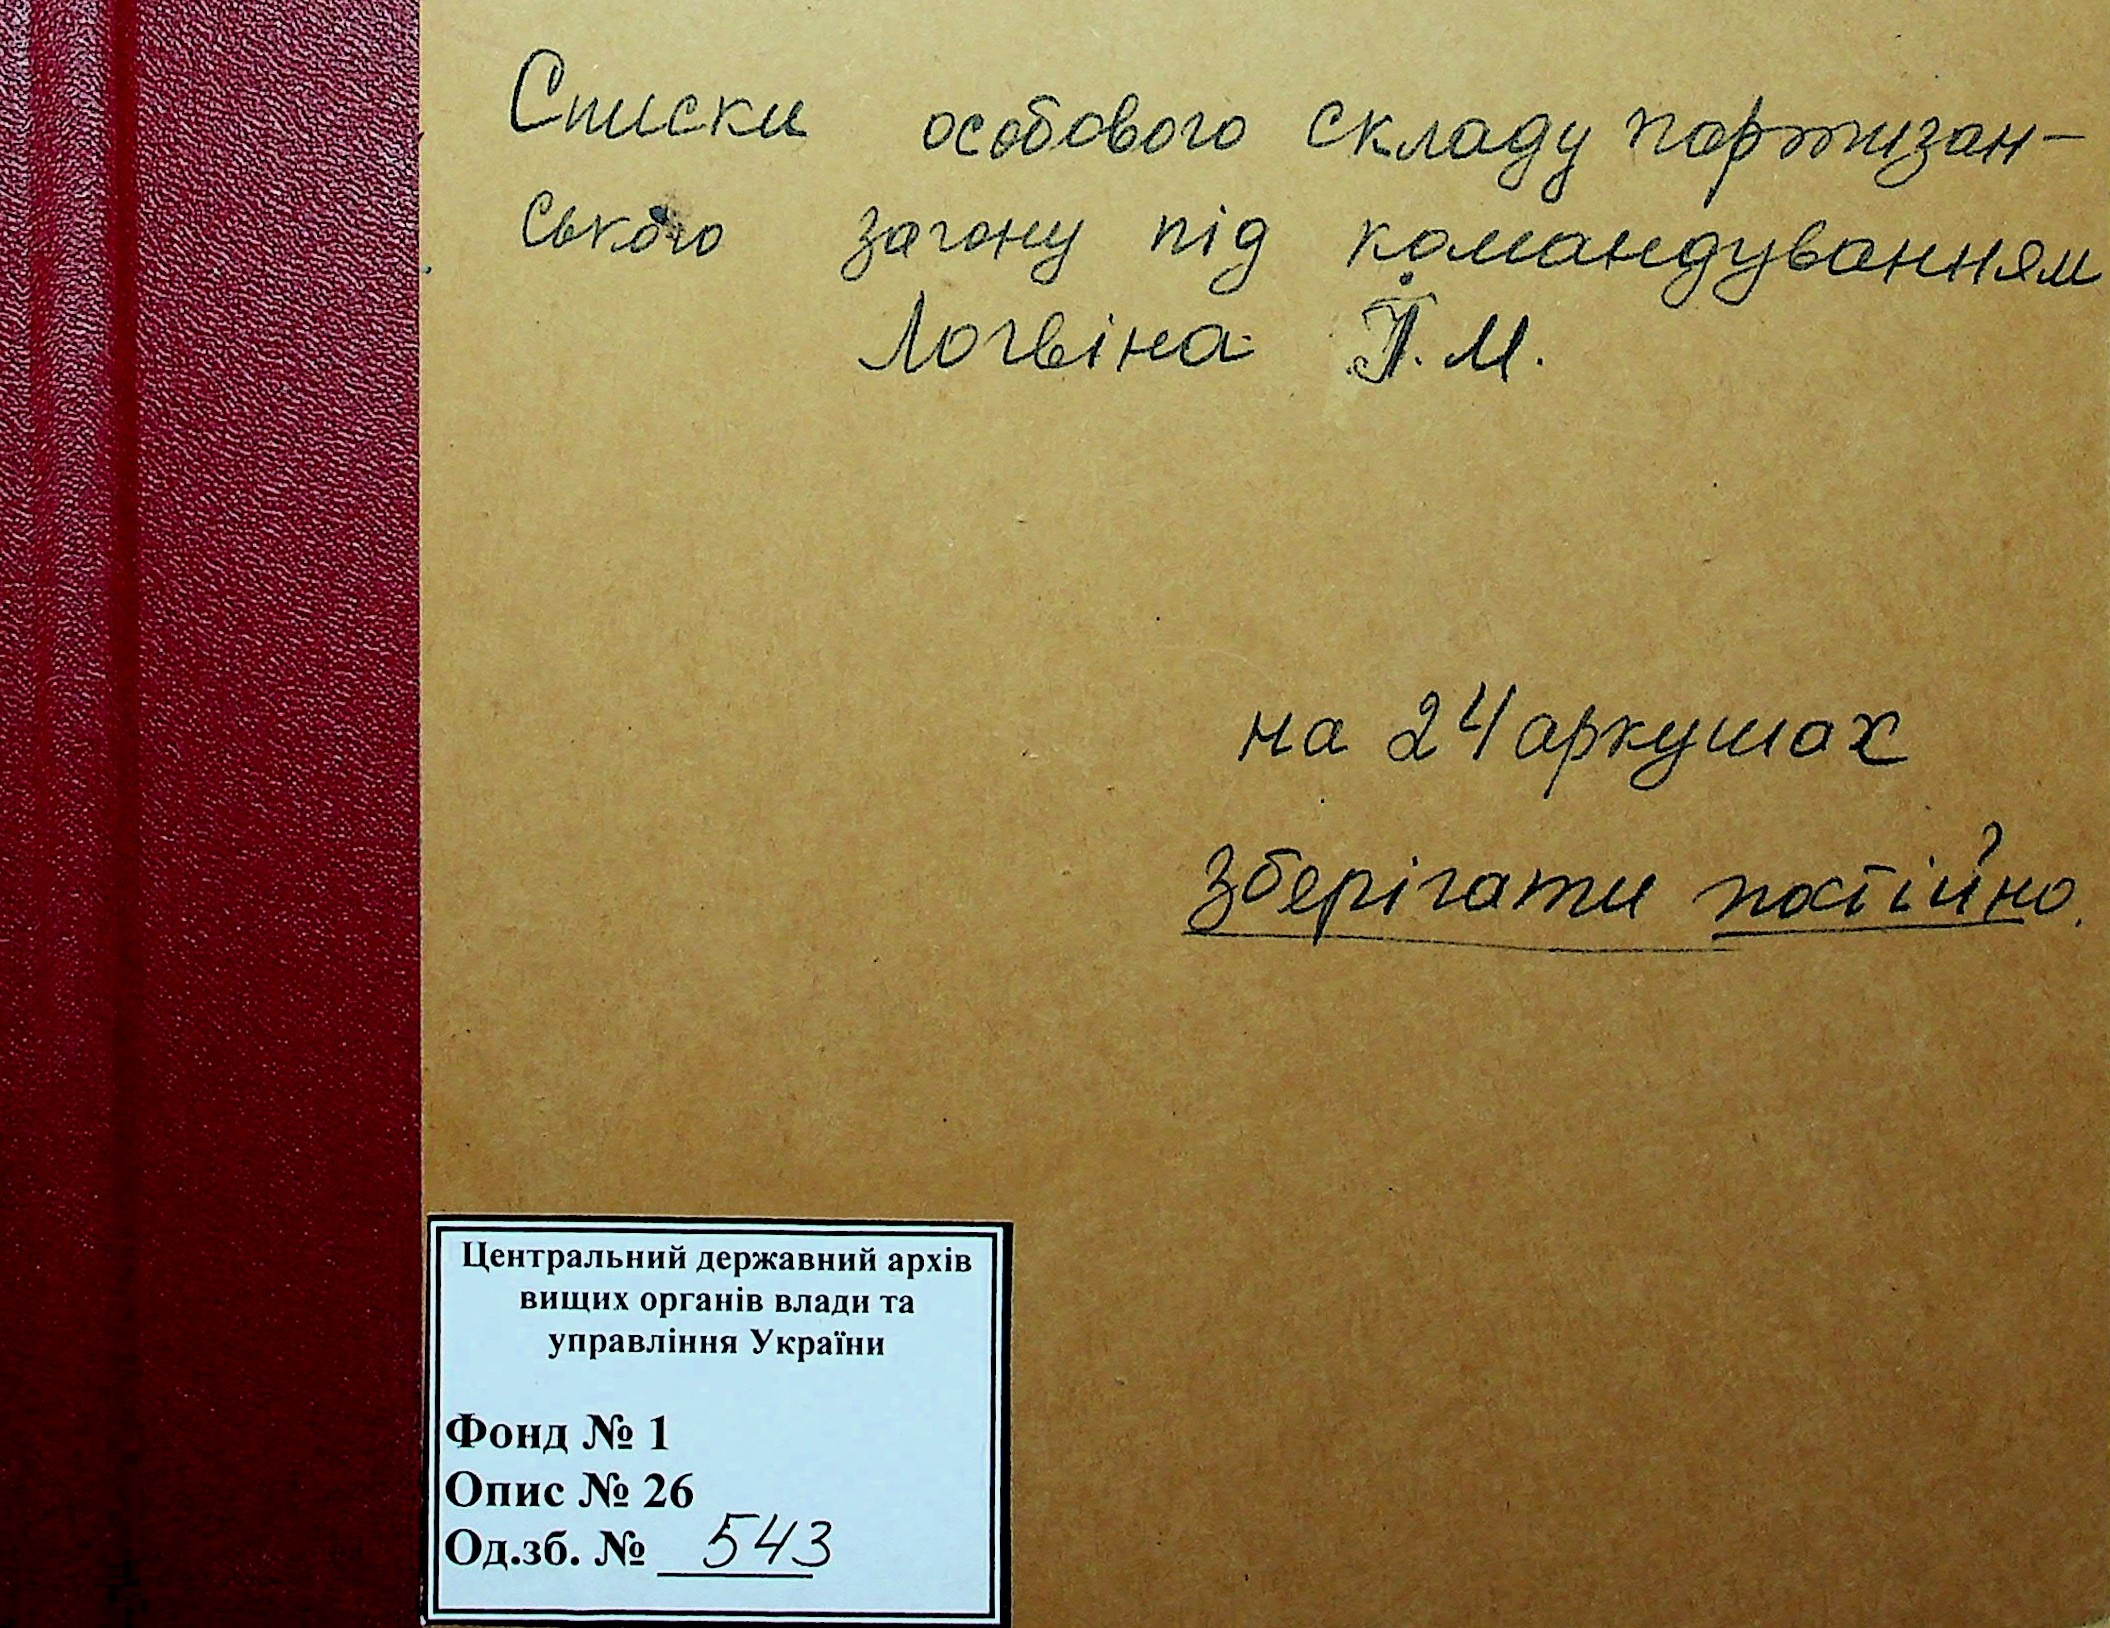 Списки особового складу партизан-
ського загону під командуванням
Логвіна М.
на 24 аркушах
Зберігати постійно.
Центральний державний архів
вищих органів влади та
управління України
Фонд № 1
Опис № 26
Од.зб. № 543